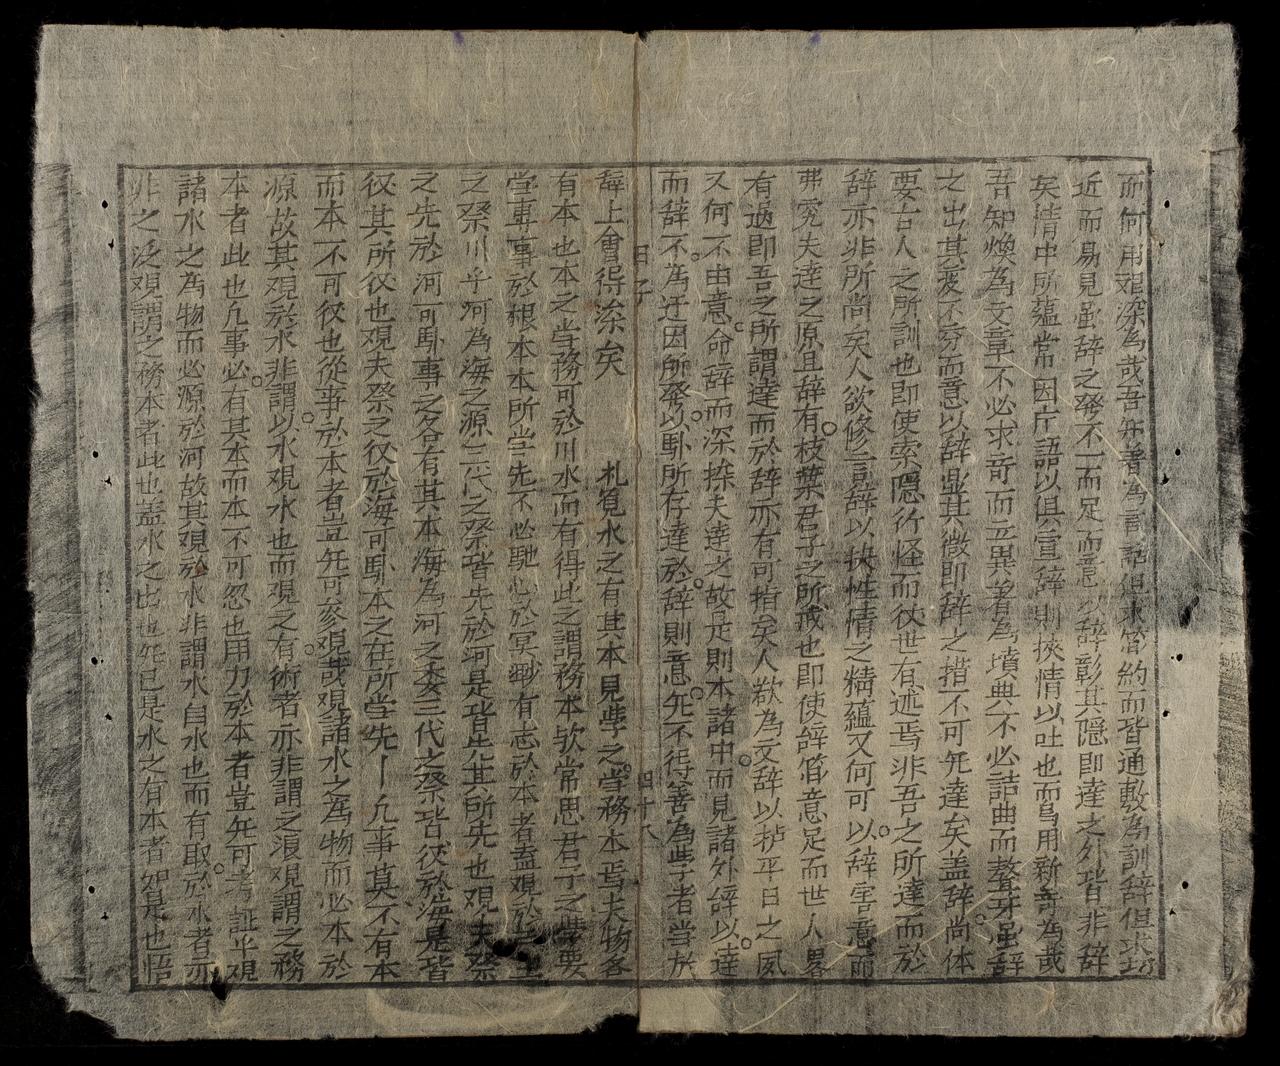 而何用艰深為㢤吾知著為言語但求旨約而皆通敷為訓辞但求功
近而易見虽辞之發不一而足而意以辞彰其隐即達之外皆非辞
矣情中所蘊常因片語以俱宣辞則挾情以吐也而焉用新奇為㢤
吾知煥為文章不必求奇而立異著為墳典不必詰曲而聱牙虽辞
之出其变不穷而意以辞显其微即辞之措不可旡達矣盖辞尚体
要古人之所訓也即使索隱行怪而後世有述焉非吾之所達而於
辞亦非所尚矣人欲修言辞以抉性情之精蘊又何可以辞害意而
弗究夫達之原且辞有枝葉君子之所戒也即使辞洎意足而世人畧
有過即吾之所謂達而於辞亦有可指矣人欲為文辞以 平日之夙
又何不由意命辞而深探夫達之故是則本諸中而見諸外辞以達
而辞不為迂因所發以 所存達於辞則意旡不得善為 者当於
辞上會得深矣　札覧水之有其本見學之当務本焉夫物各
有本也本之当務可於川水而有得此之謂務本欤常思君子之學要
当專事於根本本所当先不必馳心於冥 有志於本者盍觀於三王
之祭川乎河為海之源三代之祭皆先於河是皆先其所先也观夫祭
之先於河可 事之各有其本海為河之委三代之祭皆後於海是皆
後其所後也观夫祭之後於海可 本之在所当先丨凡事莫不有本
而本不可後也從事於本者豈旡可参观㢤观諸水之為物而必本於
源故其观於水非謂以水观水也而观之有術者亦非謂之泛观謂之務
本者此也凡事必有其本而本不可忽也用力於本者豈旡可考証乎观
諸水之為物而必源於河故其观於水非謂水自水也而有取於水者亦
非之泛观謂之務本者此也盖水之出也旡已是水之有本者如是也悟
四十八